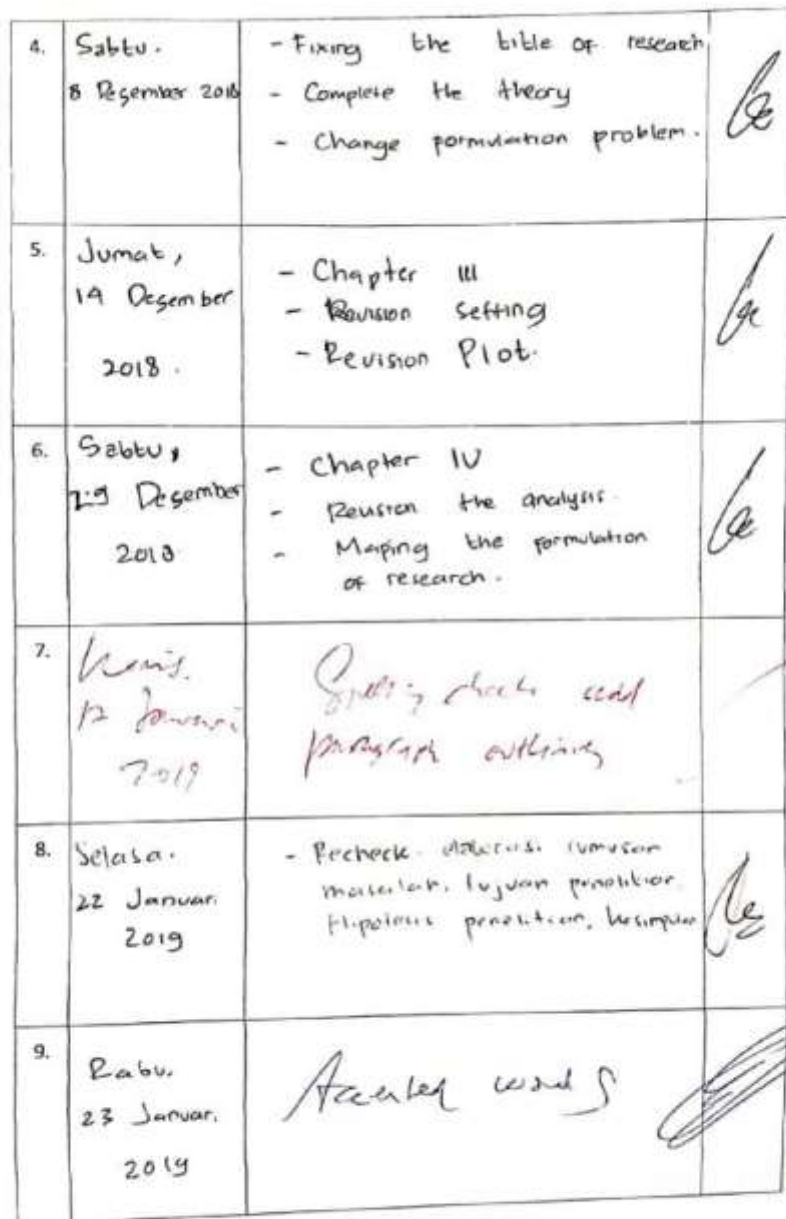 4.
Sabtu.
8 Desember 2018
- Fixing the title of research
- Complete the theory
- Change pormulation problem.
5.
Jumat,
14 Desember
2018.
- Chapter III
- Revision setting
- Revision Plot.
6.
Sabtu,
29 Desember
2018
- Chapter IV
- Revision the analysis.
- Maping the pormulation
of research.
7.
Kamis.
Januari
2019
Spelling check
paragraph
8.
Selasa.
22 Januari
2019
- Recheck. rumusan
masalah, tujuan penelitian,
Hipotesis penelitian, kesimpulan
9.
Rabu.
23 Januari
2019